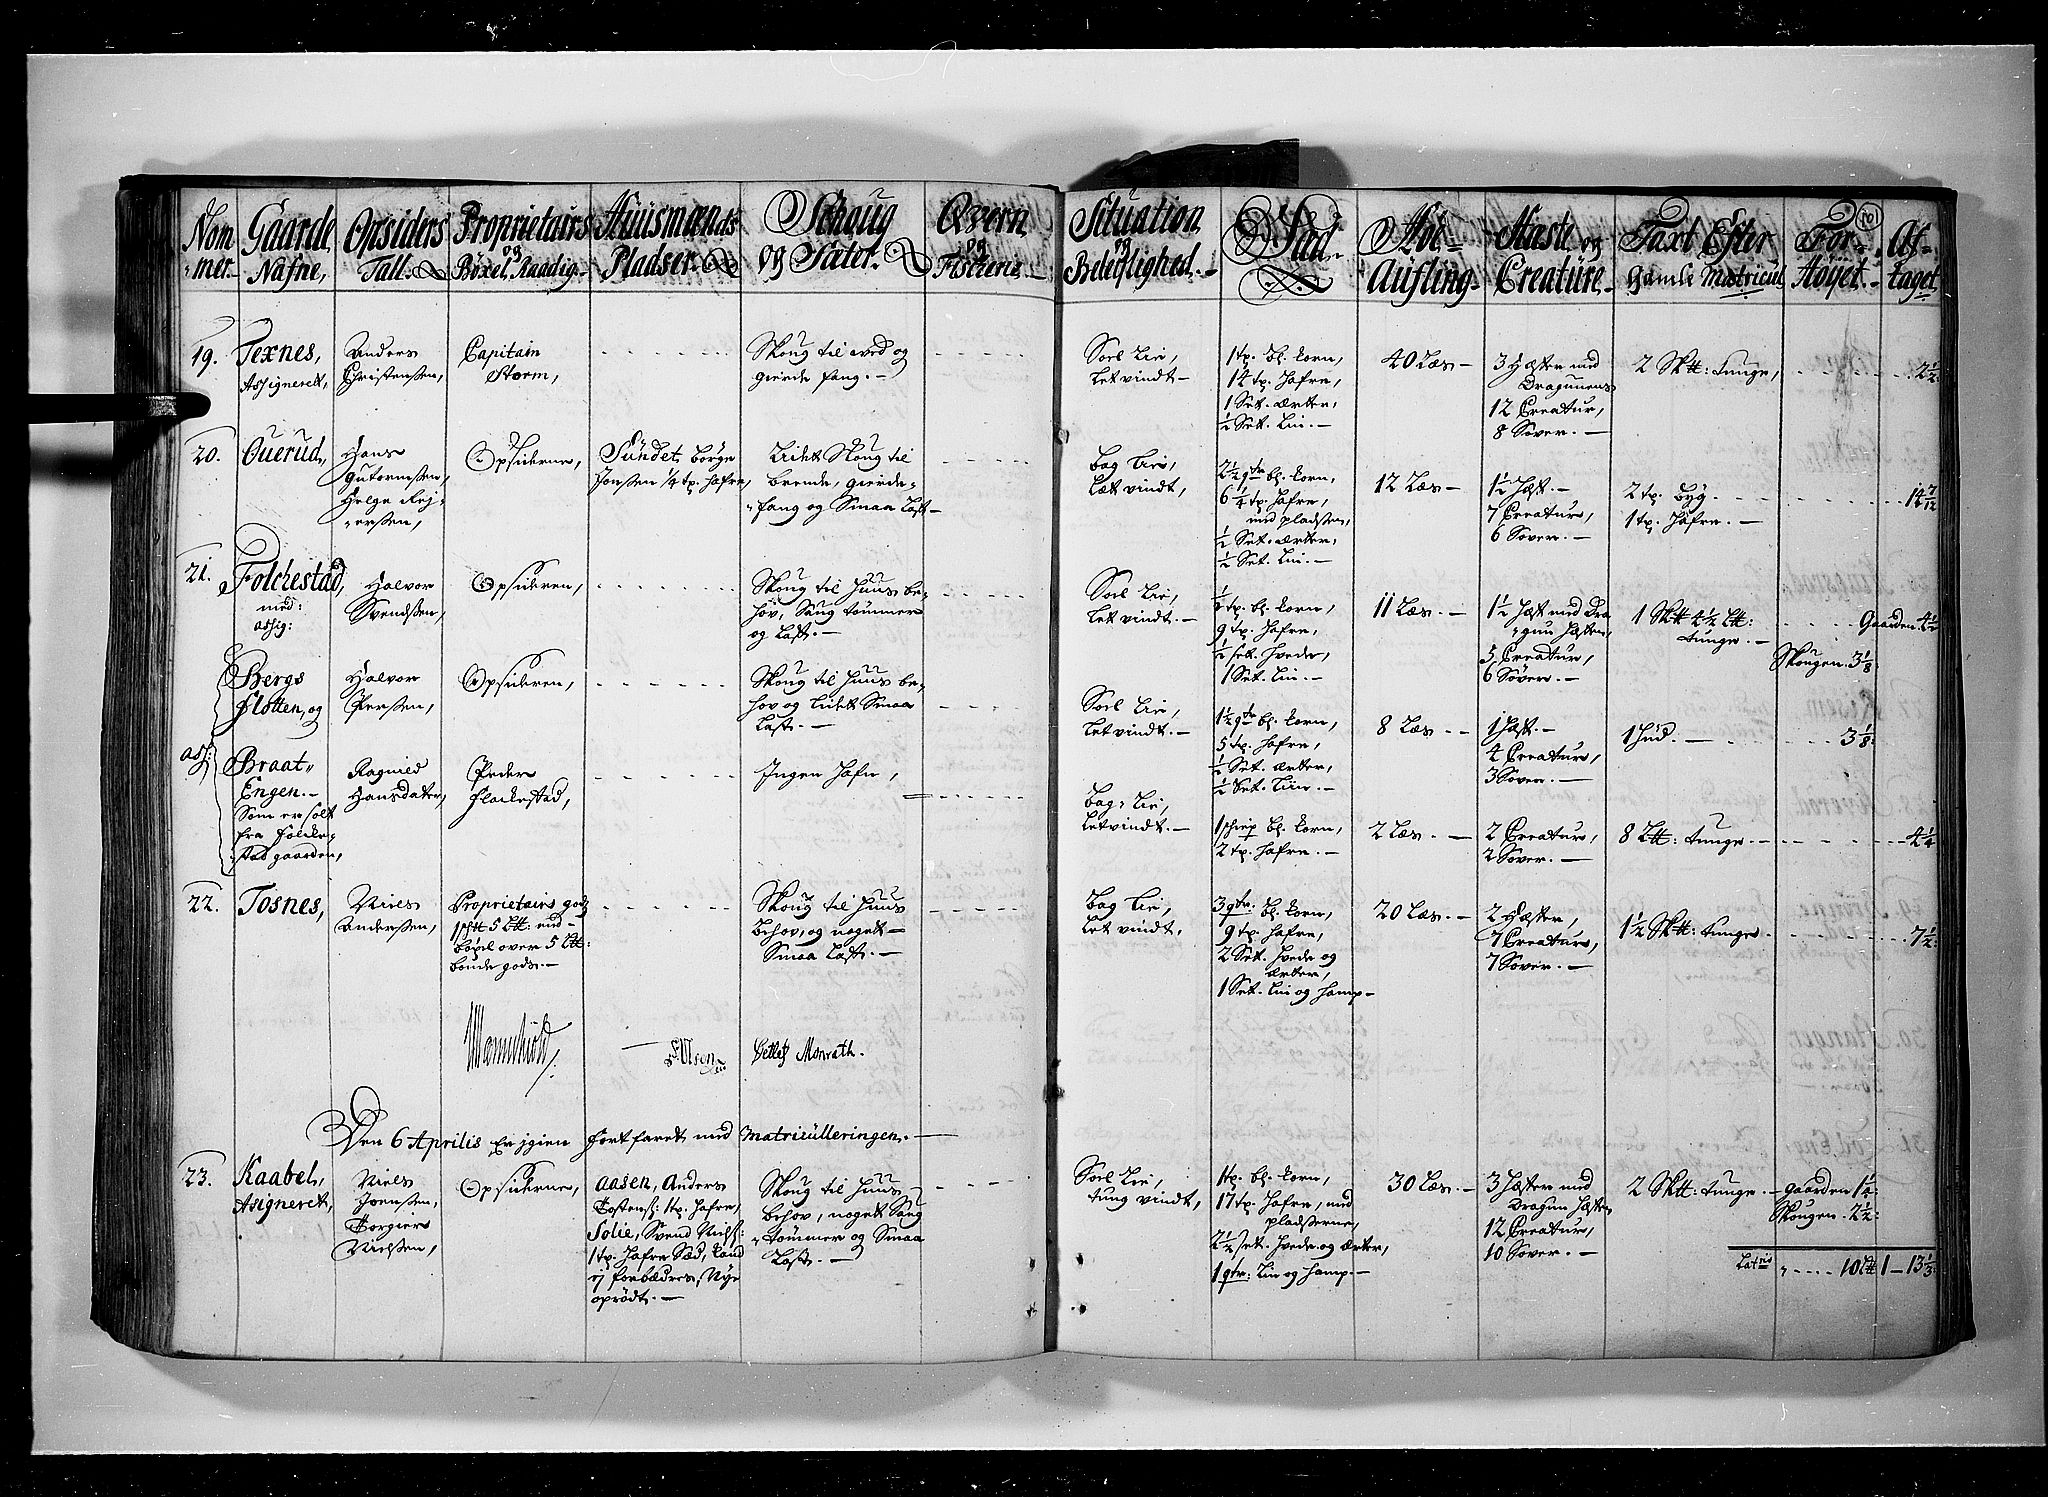 Nom
mer.
Gaarde
Nafne,
Opsiders
Tall.
Proprietairs
og
Böxel Raadig.
Huusmænds
Pladser.
Schoug
og Sæter.
Qvern
og
Fischerie.
Situation
og
Beleilighed.
Sæd.
Höe-
Aufling.
Hæste og
Creature.
Taxt Efter
gamle Matricul
For-
Höyet.
Af-
taget
101
19. Texnes,
Assigneret,
Anders
Christensen,
Capitain
Storm,
Skoug til wed og
gierde fang.
Soel Lii,
Let vindt
1 tp. bl. korn,
14 tp. Hafre,
1 Set. ærter,
½ Set. Lin.
40 Læs
3 Hæster med
Dragunens
12 Creatur,
8 Sover.
2 Sktt: tunge,
2½
20. Ouerud,
Hans
Gutormsen,
Helge Rej-
ersen,
Opsiderne,
Sundet, Børge
Jonsen ¼ tp. Hafre,
Lidet Skoug til
brende, gierde-
fang og Smaa Last
bag Lii,
Let vindt,
2½ qtr bl. korn,
6¼ tp. Hafre,
med pladsen,
½ Set. ærter,
½ Set. Lin.
12 Læs
1½ Hæst.
7 Creatur,
6 Sover.
2 tp. byg
1 tp. Hafre.
14 7/12
21. Folchestad,
med:
assig:
Halvor
Svendsen,
Opsideren,
Skoug til Huus be-
höv, Saug tømmer
og Last.
Soel Lii,
Let vindt.
½ tp. bl. korn,
9 tp. Hafre,
½ set. Hvede,
1 Set. Lin.
11 Læs
1½ Hæst med Dra-
gun Hæsten,
5 Creatur,
6 Sover.
1 Sktt 4½ Ltt:
tunge.
Gaarden 4½
Skougen 3⅛
Bergs
flotten, og
Halvor
Persen,
Opsideren,
Skoug til Huus be-
hov og Lidet Smaa
Last.
Soel Lii,
Let vindt.
1½ qtr bl. korn,
5 tp. Hafre,
½ Set. ærter,
½ Set. Lin.
8 Læs
1 Hæst.
4 Creatur,
3 Sover.
1 Hud.
3⅛
ass:
Braat-
Engen.
Som er solt
fra Folche-
stad gaarden,
Ragnild
Hansdater,
Peder
Flockestad,
Ingen Hafn,
bag Lii,
Let vindt.
1 schiep bl. korn,
2 tp. Hafre.
2 Læs.
2 Creatur,
2 Sover.
8 Ltt: tunge
4¼
22. Tosnes,
Niels
Andersen,
Proprietairs gods
1 sktt 5 Ltt: med
böxel over 5 Ltt:
bonde gods.
Skoug til Huus
behov, og noget
Smaa Last.
bag Lii,
Let vindt.
3 qtr. bl. korn,
9 tp. Hafre,
2 Set. Hvede og
ærter,
1 Set. Lin og Hamp
20 Læs.
2 Hæster,
7 Creatur,
7 Sover.
1½ Sktt: tunge
7½
Olsen
Detlef Monrath.
Den 6 Aprilis Er igien fortfaret med Matriculleringen.
23. Kaabel,
Asigneret,
Niels
Joensen,
Torgier
Nielsen,
Opsiderne,
Aasen, Anders
Tostens: 1 tp. Hafre,
Solie, Svend Niels:
1 tp. Hafre Sæd, kand
ej forbedres, Nye
oprödt.
Skoug til Huus
behov, noget Saug
tømmer og Smaa
Last.
Soel Lii,
tung vindt,
1 tp. bl. korn,
17 tp. Hafre, med
pladserne,
2½ set. Hvede og ærter,
1 qtr: Lin og Hamp
30 Læs.
3 Hæster med
Dragun Hæsten
12 Creatur,
10 Sover.
2 Sktt: tunge
gaarden 1¼
Skougen 2½
Lateris 10 Ltt 1 - 13⅓